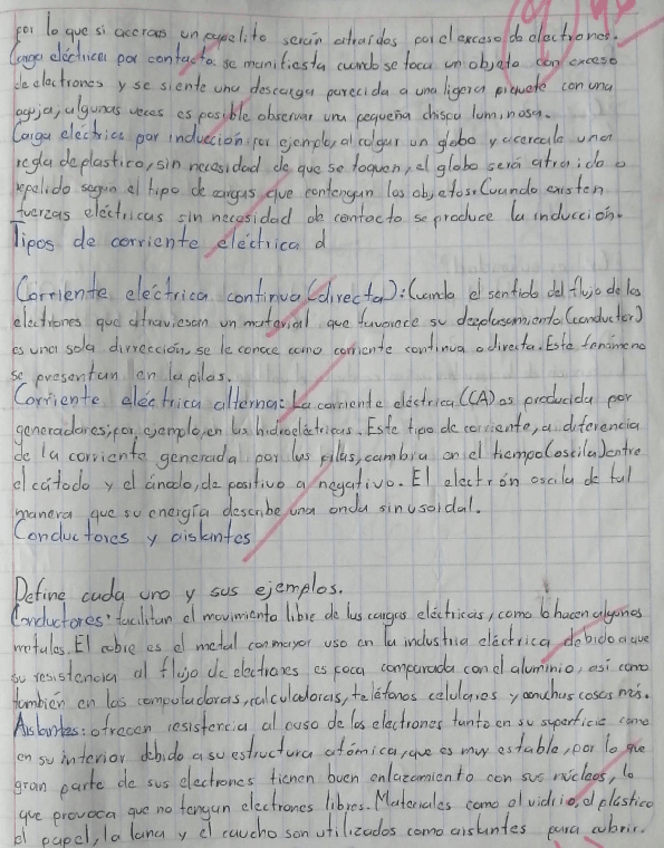 por lo que si acercas un papelito serán atraídos por el exceso de electrones.
Carga eléctrica por contacto: se manifiesta cuando se toca un objeto con exceso
de electrones y se siente una descarga parecida a una ligera piquete con una
aguja, algunas veces es posible observar una pequeña chispa luminosa.
Carga eléctrica por inducción: por ejemplo, al colgar un globo y acercale una
regla de plastico, sin necesidad de que se toquen, el globo será atraido o
repelido según el tipo de cargas que contengan los objetos. Cuando existen
fuerzas eléctricas sin necesidad de contacto se produce la inducción.
Tipos de corriente eléctrica d
Corriente eléctrica continua (directa): Cuando el sentido del flujo de los
electrones que atraviesan un material que favorece su desplazamiento (conductor)
es una sola dirrección, se le conoce como corriente continua o directa. Este fenómeno
se presentan en la pilas.
Corriente eléctrica alterna: La corriente eléctrica (CA) es producida por
generadores, por ejemplo, en las hidroeléctricas. Este tipo de corriente, a diferencia
de la corriente generada por las pilas, cambia en el tiempo (oscila) entre
el cátodo y el ánodo, de positivo a negativo. El electrón oscila de tal
manera que su energía describe una onda sinusoidal.
Conductores y aislantes
Define cada uno y sus ejemplos.
Conductores: facilitan el movimiento libre de las cargas eléctricas, como lo hacen algunos
metales. El cobre es el metal con mayor uso en la industria eléctrica debido a que
su resistencia al flujo de electrones es poca comparada con el aluminio, así como
también en las computadoras, calculadoras, teléfonos celulares y muchas cosas más.
Aislantes: ofrecen resistencia al paso de los electrones tanto en su superficie como
en su interior debido a su estructura atómica, que es muy estable, por lo que
gran parte de sus electrones tienen buen enlazamiento con sus núcleos, lo
que provoca que no tengan electrones libres. Materiales como el vidrio, el plástico
el papel, la lana y el caucho son utilizados como aislantes para cubrir.